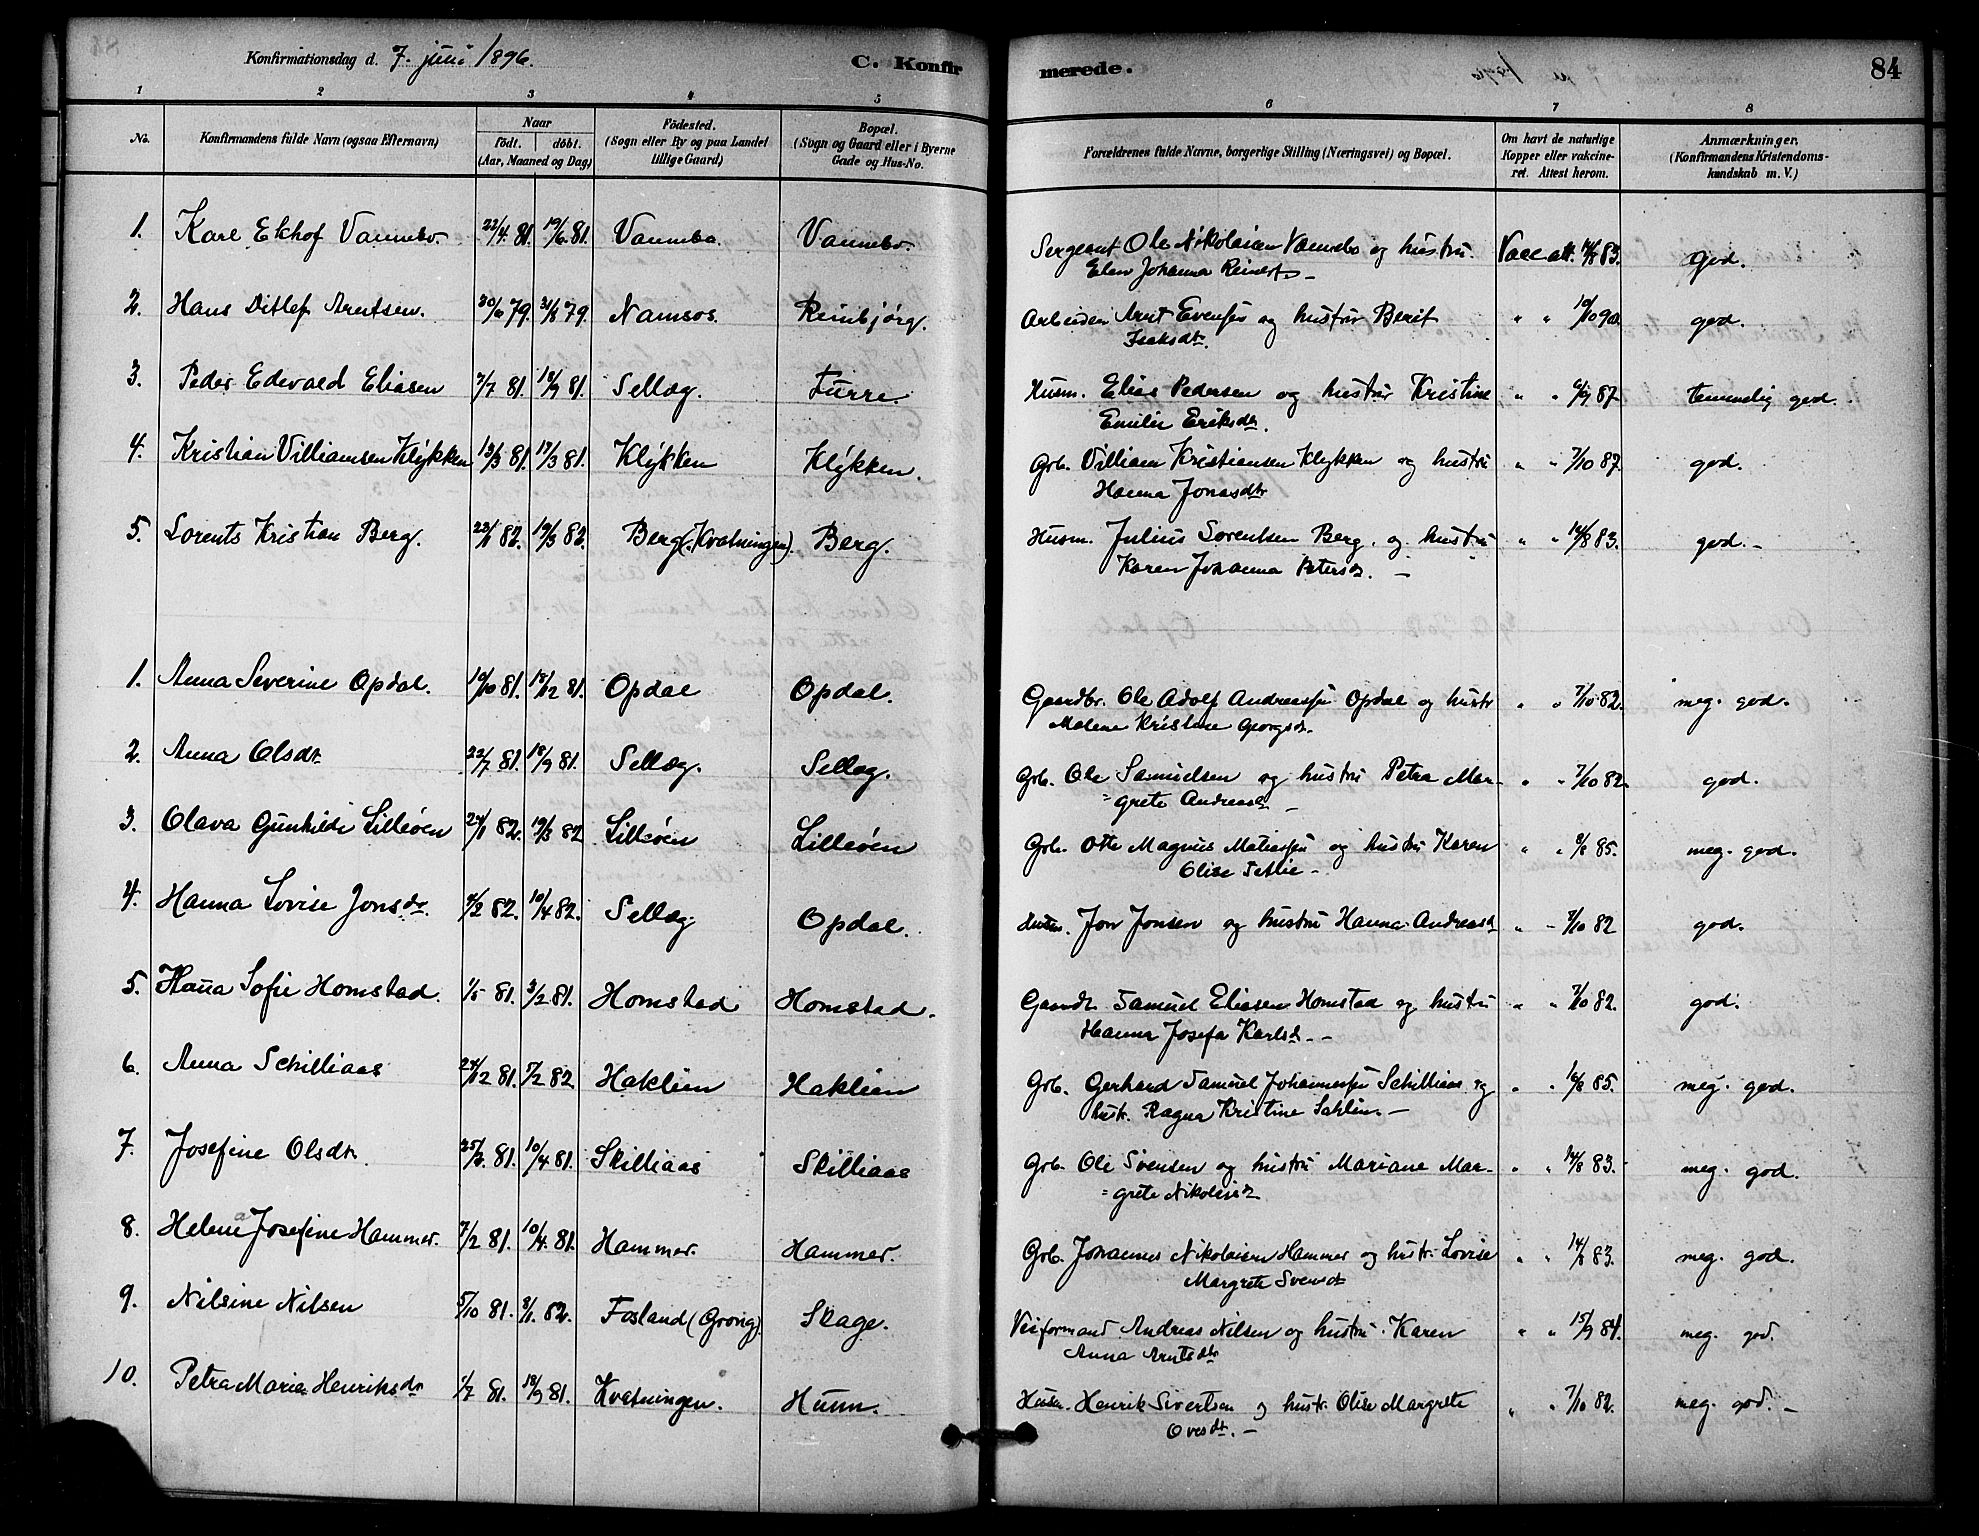 Konfirmationsdag d. 7. juni 1896.
C. Konfirmerede.
84
1 2 3 4 5 6 7 8
No.
Konfirmandens fulde Navn (ogsaa Efternavn)
Naar
födt. döbt.
(Aar, Maaned og Dag)
Födested.
(Sogn eller By og paa Landet
tillige Gaard)
Bopæl.
(Sogn og Gaard eller i Byerne
Gade og Hus-No.
Forældrenes fulde Navne, borgerlige Stilling (Næringsvei) og Bopæl.
Om havt de naturlige
Kopper eller vakcine-
ret. Attest herom.
Anmærkninger.
(Konfirmandens Kristendoms-
kundskab m. V.)
1. Karl Ekhof Vannebo. 22/4 81. 19/6 81. Vannebo. Vannebo. Sergeant Ole Nikolaisen Vannebo og hustru Vacc. att. 14/8 83. god.
Elen Johanna Reinertsd. –
2. Hans Ditlef Arntsen. 30/6 79. 31/8 79. Namsos. Reinbjørg. Arbeider Arnt Evensen og hustru Berit " " 10/10 90. god.
Isaksdtr.
3. Peder Edevald Eliasen 7/7 81. 18/9 81. Sellæg. Furre. Husm. Elias Pedersen og hustru Kristine " " 6/9 87. temmelig god.
Emilie Eriksdtr.
4. Kristian Villiamsen Klykken 13/3 81. 17/3 81. Klykken Klykken. Grb. Villiam Kristiansen Klykken og hustru " " 7/10 87. god.
Hanna Jonasdtr
5. Lorents Kristian Berg. 23/1 82. 19/3 82. Berg (Kvatningen). Berg. Husm. Julius Lorentsen Berg. og hustru " " 14/8 83. god. –
Karen Johanna Petersd. –
1. Anna Severine Opdal. 10/10 81. 18/12 81. Opdal Opdal. Gaardbr. Ole Adolf Andreassen Opdal og hustr " " 7/10 82. meg. god.
Malene Kristine Georgsd.
2. Anna Olsdtr. 22/7 81. 18/9 81. Sellæg. Sellæg. Grb. Ole Samuelsen og hustru Petra Mar- " " 7/10 82. god.
=grete Andreasd –
3. Olava Gunhilde Lilleöen 24/1 82. 19/3 82 Lilleöen Lilleöen Grb. Otte Magnus Matiassen og hustru Karen " " 9/8 85. meg. god.
Olise –
4. Hanna Lovise Jonsdtr. 4/2 82. 10/4 82. Sellæg Opdal. Husm. Jon Jonsen og hustru Hanna Andreasd " - 7/10 82 god.
5. Hanna Sofie Homstad. 1/5 81. 3/2 81. Homstad Homstad. Gaardb. Samuel Eliasen Homstad og hustru " " 7/10 82. god.
Hanna Josefa Karlsd. –
6. Anna Schilliaas 24/12 81. 7/2 82 Haklien Haklien Grb. Gerhard Samuel Johannessen Schilliaas og " " 16/8 85. meg. god.
hustr. Ragna Kristine Sahlin. –
7. Josefine Olsdtr. 25/2 81. 10/4 81. Skilliaas Skilliaas Grb. Ole Svensen og hustru Mariane Mar- " " 14/8 83. meg. god.
=grete Nikolaisd
8. Helena Josefine Hammer. 7/2 81. 10/4 81. Hammer. Hammer. Grb. Johannes Nikolaisen Hammer og hustr. Lovise " " 14/8 83. meg. god.
Margrete Svensdt
9. Nilsine Nilsen 5/10 81. 8/1 82. Fosland (Grong). Skage. Veiformand. Andreas Nilsen og hustru. Karen " " 15/9 84. meg. god.
Anna Arntsdtr
10. Petra Maria Henriksdtr 1/7 81. 18/9 81. Kvatningen. Hunn. Husm. Henrik Sivertsen og hustr. Olise Margrete " " 7/10 82. meg. god. –
Ovesdt. –